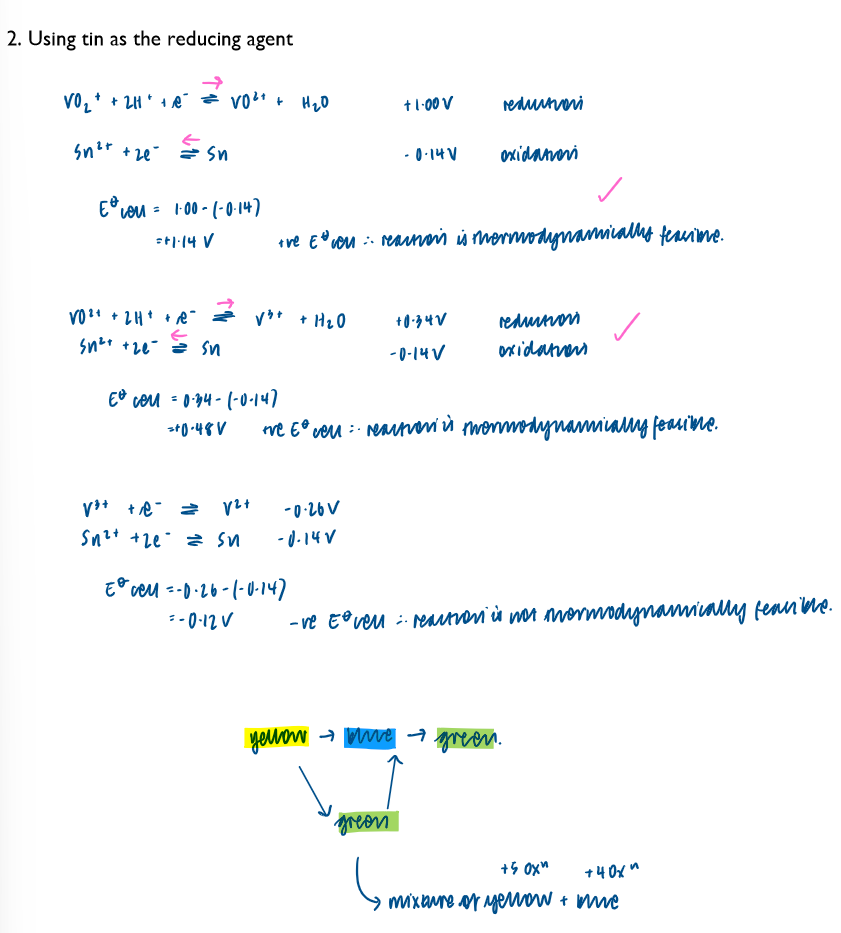 2. Using tin as the reducing agent
VO₂⁺ + 2H⁺ + e⁻ ⇌ VO²⁺ + H₂O +1.00V reduction
Sn²⁺ + 2e⁻ ⇌ Sn -0.14V oxidation
E°cell = 1.00-(-0.14)
=+1.14 V +ve E°cell ∴ reaction is thermodynamically feasible.
VO²⁺ + 2H⁺ + e⁻ ⇌ V³⁺ + H₂O +0.34V reduction
Sn²⁺ +2e⁻ ⇌ Sn -0.14V oxidation
E°cell = 0.34-(-0.14)
=+0.48V +ve E°cell ∴ reaction is thermodynamically feasible.
V³⁺ +e⁻ ⇌ V²⁺ -0.26V
Sn²⁺ +2e⁻ ⇌ Sn -0.14V
E°cell =-0.26-(-0.14)
=-0.12V -ve E°cell ∴ reaction is not thermodynamically feasible.
yellow → blue → green.
green
+5 oxⁿ +4 oxⁿ
mixture of yellow + blue